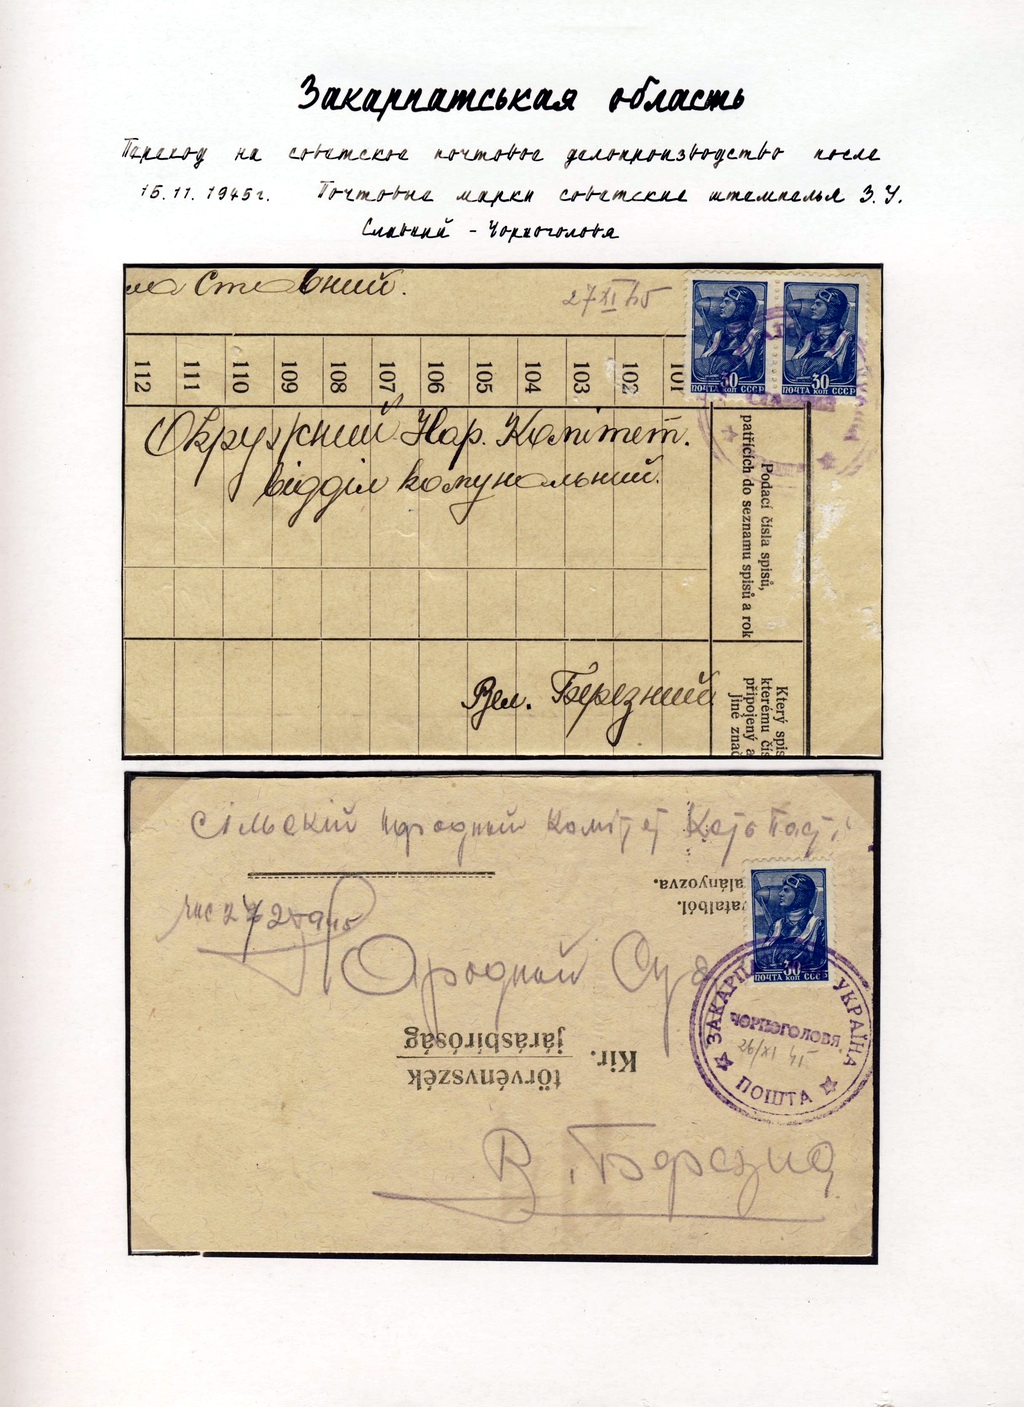 Закарпатськая область
Переход на советское почтовое делопроизводство после
15.11.1945г. Почтовые марки советские штемпелья З.У.
Ставний - Чорноголовя
Ставний.
27 XI 45
112 111 110 109 108 107 106 105 104 103 102 101
30 30
ПОЧТА коп СССР ПОЧТА коп СССР
Окружний Нар. Комітет.
відділ комунальний.
Podací čísla spisů,
patřících do seznamu spisů a rok
Který spis
kterému čís
připojený a
jiné znač
Вел. Березний
Сільскій народний комітет
alányozva.
vatalból.
Народний Суд
30
ПОЧТА коп СССР
ЗАКАРПА УКРАЇНА
ЧОРНОГОЛОВЯ
26/XI 45
ПОШТА
Kir. törvényszék
járásbíróság
В. Березний